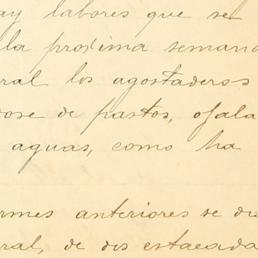 ay labores que se
la proxima semana
ral los agostaderos
dose de pastos, ojala
aguas, como ha
rmes anteriores se di
ral, de dis estacada